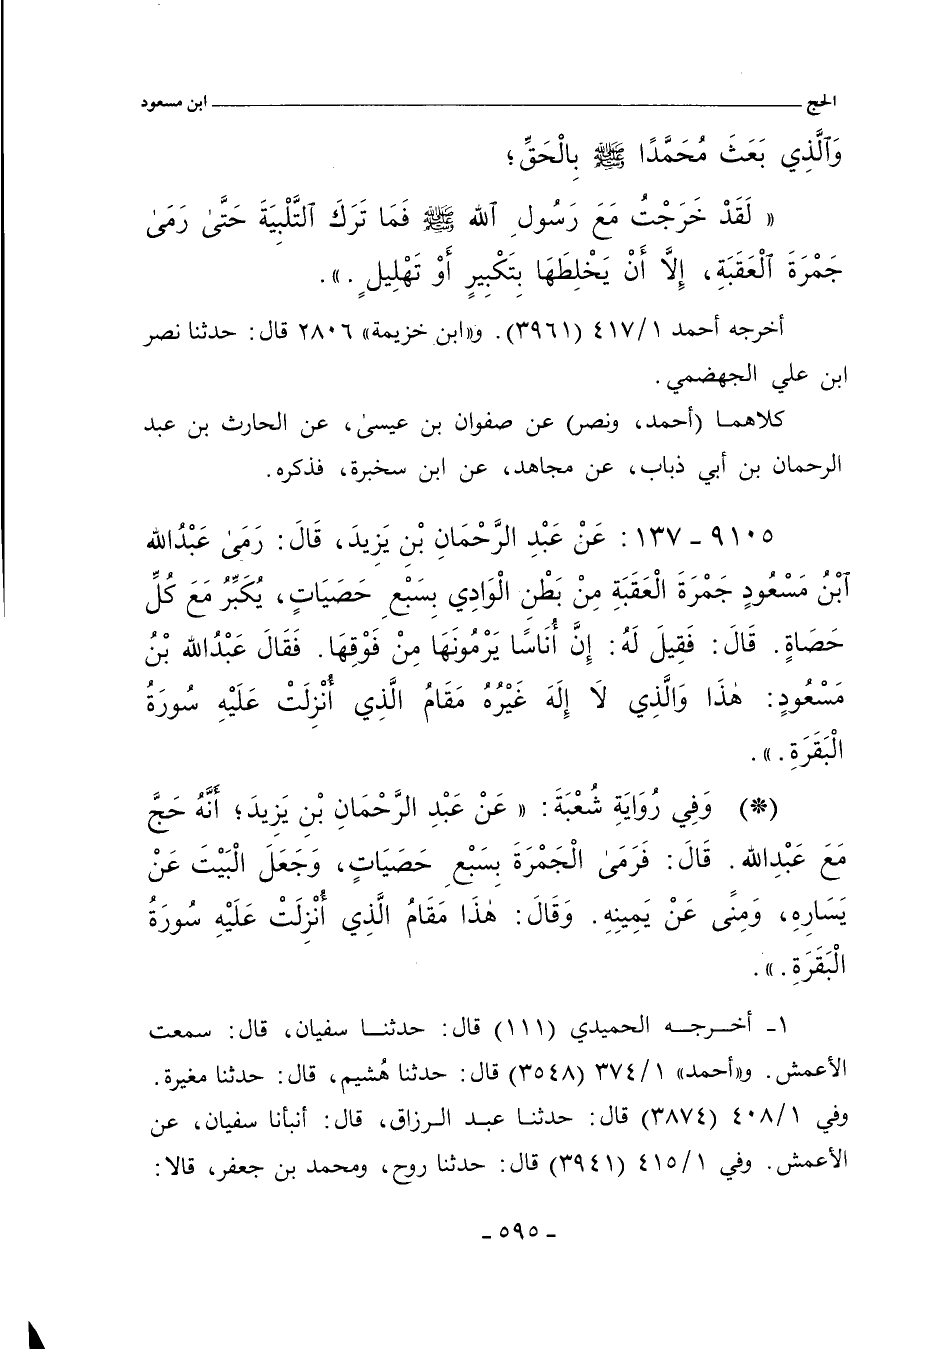 الحج ــــــ ابن مسعود
وَٱلَّذِي بَعَثَ مُحَمَّدًا ﷺ بِالْحَقِّ؛
« لَقَدْ خَرَجْتُ مَعَ رَسُولِ ٱللهِ ﷺ فَمَا تَرَكَ ٱلتَّلْبِيَةَ حَتَّىٰ رَمَىٰ
جَمْرَةَ ٱلْعَقَبَةِ، إِلَّا أَنْ يَخْلِطَهَا بِتَكْبِيرٍ أَوْ تَهْلِيلٍ .».
أخرجه أحمد ٤١٧/١ (٣٩٦١). و«ابن خزيمة» ٢٨٠٦ قال: حدثنا نصر
ابن علي الجهضمي.
كلاهما (أحمد، ونصر) عن صفوان بن عيسىٰ، عن الحارث بن عبد
الرحمان بن أبي ذباب، عن مجاهد، عن ابن سخبرة، فذكره.
٩١٠٥ ـ ١٣٧ : عَنْ عَبْدِ الرَّحْمَانِ بْنِ يَزِيدَ، قَالَ: رَمَىٰ عَبْدُاللهِ
ٱبْنُ مَسْعُودٍ جَمْرَةَ الْعَقَبَةِ مِنْ بَطْنِ الْوَادِي بِسَبْعِ حَصَيَاتٍ، يُكَبِّرُ مَعَ كُلِّ
حَصَاةٍ. قَالَ: فَقِيلَ لَهُ: إِنَّ أُنَاسًا يَرْمُونَهَا مِنْ فَوْقِهَا. فَقَالَ عَبْدُاللهِ بْنُ
مَسْعُودٍ: هٰذَا وَالَّذِي لَا إِلَهَ غَيْرُهُ مَقَامُ الَّذِي أُنْزِلَتْ عَلَيْهِ سُورَةُ
الْبَقَرَةِ .».
(*) وَفِي رُوَايَةِ شُعْبَةَ: « عَنْ عَبْدِ الرَّحْمَانِ بْنِ يَزِيدَ؛ أَنَّهُ حَجَّ
مَعَ عَبْدِاللهِ. قَالَ: فَرَمَىٰ الْجَمْرَةَ بِسَبْعِ حَصَيَاتٍ، وَجَعَلَ الْبَيْتَ عَنْ
يَسَارِهِ، وَمِنًى عَنْ يَمِينِهِ. وَقَالَ: هٰذَا مَقَامُ الَّذِي أُنْزِلَتْ عَلَيْهِ سُورَةُ
الْبَقَرَةِ .».
١ـ أخـرجـه الحميدي (١١١) قال: حدثنـا سفيان، قال: سمعت
الأعمش. و«أحمد» ٣٧٤/١ (٣٥٤٨) قال: حدثنا هُشيم، قال: حدثنا مغيرة.
وفي ٤٠٨/١ (٣٨٧٤) قال: حدثنـا عبـد الـرزاق، قال: أنبأنا سفيان، عن
الأعمش. وفي ٤١٥/١ (٣٩٤١) قال: حدثنا روح، ومحمد بن جعفر، قالا:
ـ ٥٩٥ ـ